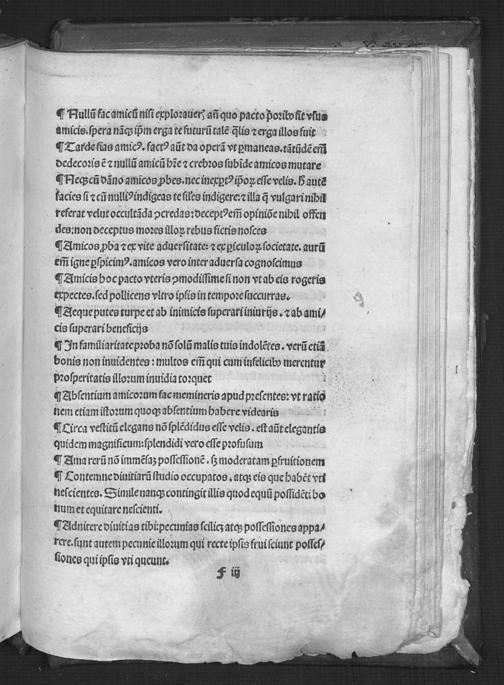 ¶ Nullū fac amicū nisi exploraueris añ quo pacto prioribꝰ sit vsus
amicis. spera nãqꝫ ipm erga te futurū talē qlis & erga illos fuit
¶ Tarde fias amicꝰ. factꝰ aūt da operã vt pmaneas. tãtūdē em̄
dedecoris ē & nullū amicū hr̄e & crebros subīde amicos mutare
¶ Neqꝫ cū dãno amicos ꝓbes. nec inexptꝰ ipoꝝ esse velis. h̄ autē
facies si & cū nulliꝰ indigeas te siles indigere: & illa q̄ vulgari nihil
referat velut occultãda ꝯcredas: deceptꝰ em̄ opiniōe nihil offen
des: non deceptus mores illoꝝ rebus fictis nosces
¶ Amicos ꝓba & ex vite aduersitate: & ex piculoꝝ societate. aurū
em̄ igne pspicimꝰ. amicos vero inter aduersa cognoscimus
¶ Amicis hoc pacto vteris ꝯmodissime si non vt ab eis rogeris
expectes. sed pollicens vltro ipsis in tempore succurras.
¶ Aeque putes turpe et ab inimicis superari iniurijs. & ab ami/
cis superari beneficijs
¶ In familiaritate proba nō solū malis tuis indolētes. verū etiã
bonis non inuidentes: multos em̄ qui cum infelicibꝰ merentur
prosperitatis illorum inuidia torquet
¶ Absentium amicorum fac memineris apud presentes: vt ratio
nem etiam istorum quoqꝫ absentium habere videaris
¶ Circa vestitū elegans nō splēdidus esse velis. est aūt elegantis
quidem magnificum: splendidi vero esse profusum
¶ Ama rerū nō immēsaꝫ possessionē. sꝫ moderatam pfruitionem
¶ Contemne diuitiarū studio occupatos. atqꝫ eis que habēt vti
nescientes. Simile nanqꝫ contingit illis quod equū possidēti bo
num et equitare nescienti.
¶ Adnitere diuitias tibi: pecunias scilicꝫ atqꝫ possessiones appa/
rere. sunt autem pecunie illorum qui recte ipsis frui sciunt posses/
siones qui ipsis vti queunt.
f iij